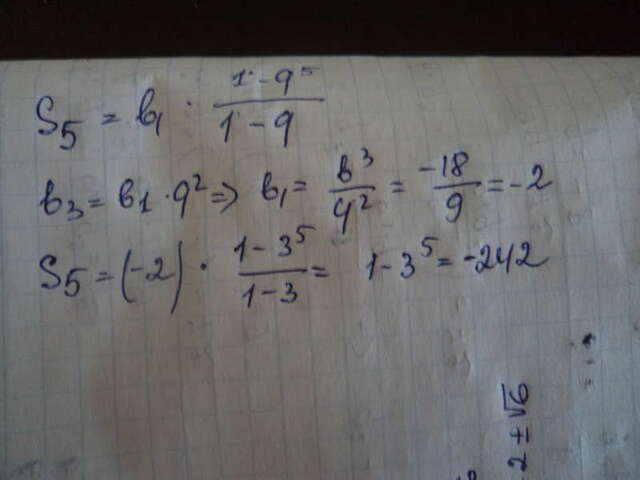 S₅ = b₁ · (1 - q⁵)/(1 - q)
b₃ = b₁ · q² => b₁ = b³/q² = -18/9 = -2
S₅ = (-2) · (1 - 3⁵)/(1 - 3) = 1 - 3⁵ = -242
2 ± √6